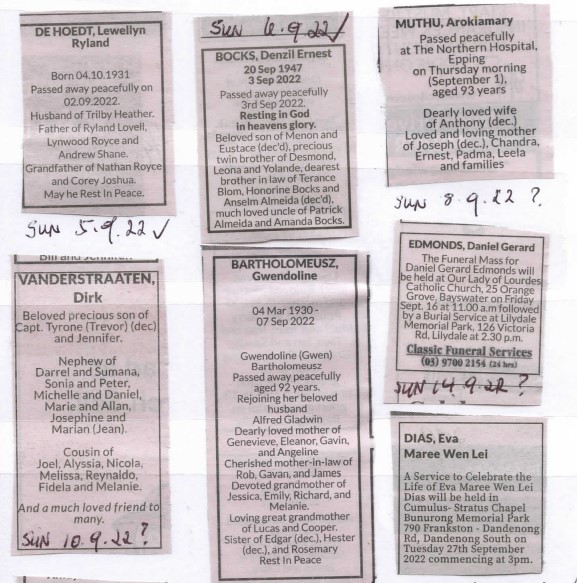 DE HOEDT, Lewellyn
Ryland
Born 04.10.1931
Passed away peacefully on
02.09.2022.
Husband of Trilby Heather.
Father of Ryland Lovell,
Lynwood Royce and
Andrew Shane.
Grandfather of Nathan Royce
and Corey Joshua.
May he Rest In Peace.
SUN 5.9.22 ✓
SUN 6.9.22 ✓
BOCKS, Denzil Ernest
20 Sep 1947
3 Sep 2022
Passed away peacefully
3rd Sep 2022.
Resting in God
in heavens glory.
Beloved son of Menon and
Eustace (dec'd), precious
twin brother of Desmond,
Leona and Yolande, dearest
brother in law of Terance
Blom, Honorine Bocks and
Anselm Almeida (dec'd),
much loved uncle of Patrick
Almeida and Amanda Bocks.
MUTHU, Arokiamary
Passed peacefully
at The Northern Hospital,
Epping
on Thursday morning
(September 1),
aged 93 years
Dearly loved wife
of Anthony (dec.)
Loved and loving mother
of Joseph (dec.), Chandra,
Ernest, Padma, Leela
and families
SUN 8.9.22 ?
VANDERSTRAATEN,
Dirk
Beloved precious son of
Capt. Tyrone (Trevor) (dec)
and Jennifer.
Nephew of
Darrel and Sumana,
Sonia and Peter,
Michelle and Daniel,
Marie and Allan,
Josephine and
Marian (Jean).
Cousin of
Joel, Alyssia, Nicola,
Melissa, Reynaldo,
Fidela and Melanie.
And a much loved friend to
many.
SUN 10.9.22 ?
BARTHOLOMEUSZ,
Gwendoline
04 Mar 1930 -
07 Sep 2022
Gwendoline (Gwen)
Bartholomeusz
Passed away peacefully
aged 92 years.
Rejoining her beloved
husband
Alfred Gladwin
Dearly loved mother of
Genevieve, Eleanor, Gavin,
and Angeline
Cherished mother-in-law of
Rob, Gavan, and James
Devoted grandmother of
Jessica, Emily, Richard, and
Melanie.
Loving great grandmother
of Lucas and Cooper.
Sister of Edgar (dec.), Hester
(dec.), and Rosemary
Rest In Peace
EDMONDS, Daniel Gerard
The Funeral Mass for
Daniel Gerard Edmonds will
be held at Our Lady of Lourdes
Catholic Church, 25 Orange
Grove, Bayswater on Friday
Sept. 16 at 11.00 a.m followed
by a Burial Service at Lilydale
Memorial Park, 126 Victoria
Rd, Lilydale at 2.30 p.m.
Classic Funeral Services
(03) 9700 2154 (24 hrs)
SUN 14.9.22 ?
DIAS, Eva
Maree Wen Lei
A Service to Celebrate the
Life of Eva Maree Wen Lei
Dias will be held in
Cumulus- Stratus Chapel
Bunurong Memorial Park
790 Frankston - Dandenong
Rd, Dandenong South on
Tuesday 27th September
2022 commencing at 3pm.